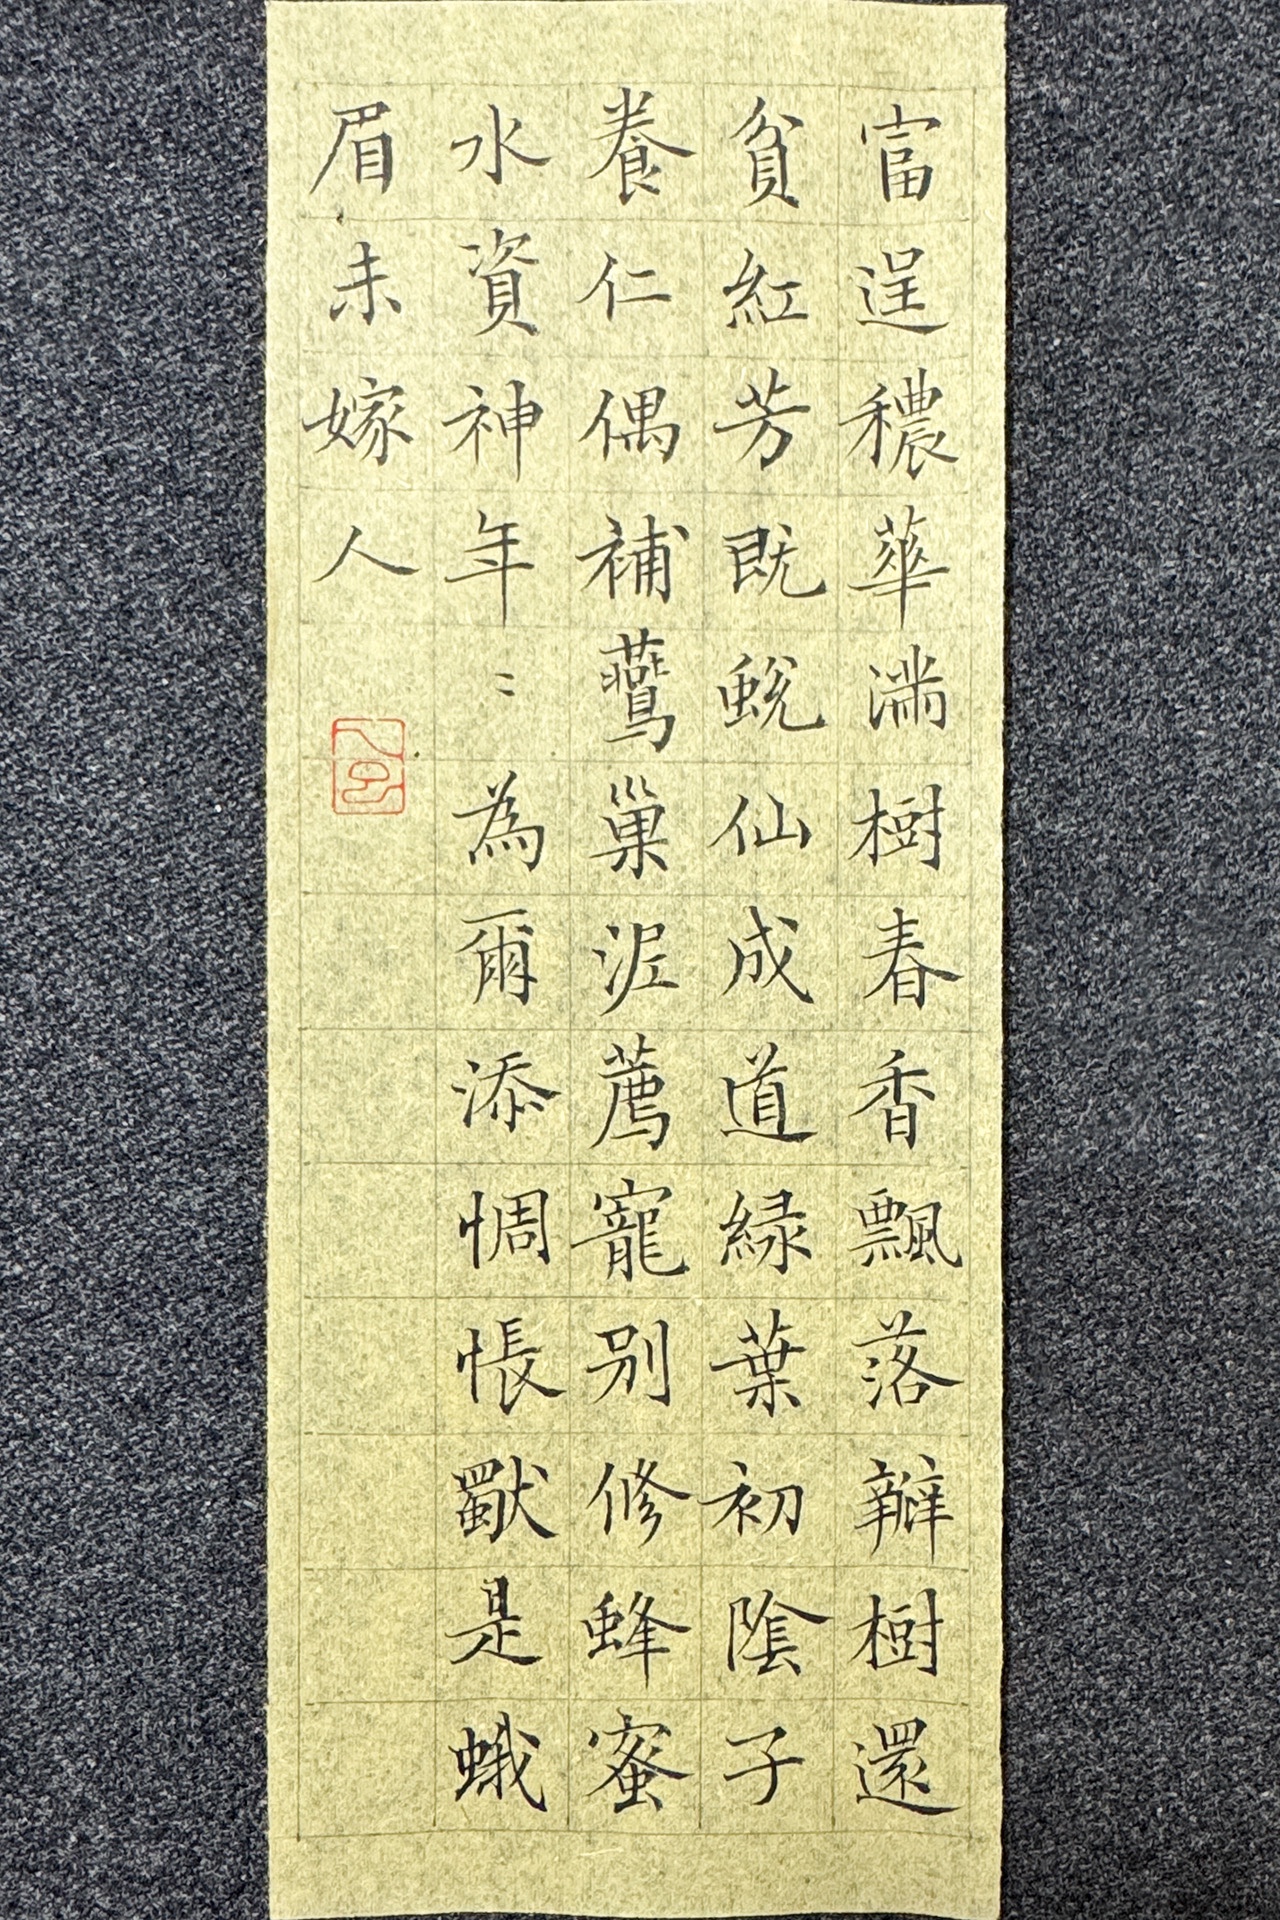 富逞穠華滿樹春香飄落瓣樹還
貧紅芳既蛻仙成道綠葉初陰子
養仁偶補鷰巢泥薦寵別修蜂蜜
水資神年〻為爾添惆悵獸是蛾
眉未嫁人